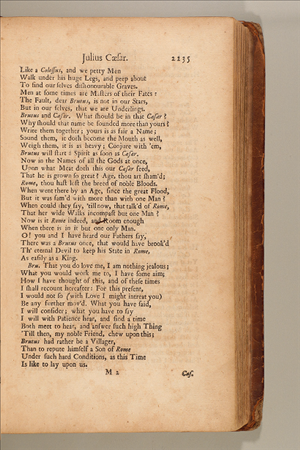 Julius Cæsar. 2235
Like a Colossus, and we petty Men
Walk under his huge Legs, and peep about
To find our selves dishonourable Graves.
Men at some times are Masters of their Fates:
The Fault, dear Brutus, is not in our Stars,
But in our selves, that we are Underlings.
Brutus and Cæsar: What should be in that Cæsar?
Why should that name be sounded more than yours?
Write them together; yours is as fair a Name;
Sound them, it doth become the Mouth as well,
Weigh them, it is as heavy; Conjure with 'em,
Brutus will start a Spirit as soon as Cæsar.
Now in the Names of all the Gods at once,
Upon what Meat doth this our Cæsar feed,
That he is grown so great? Age, thou art sham'd;
Rome, thou hast lost the breed of noble Bloods.
When went there by an Age, since the great Flood,
But it was fam'd with more than with one Man?
When could they say, 'till now, that talk'd of Rome,
That her wide Walks incompast but one Man?
Now is it Rome indeed, and Room enough
When there is in it but one only Man.
O! you and I have heard our Fathers say,
There was a Brutus once, that would have brook'd
Th' eternal Devil to keep his State in Rome,
As easily as a King.
Bru. That you do love me, I am nothing jealous;
What you would work me to, I have some aim;
How I have thought of this, and of these times
I shall recount hereafter: For this present,
I would not so (with Love I might intreat you)
Be any further mov'd. What you have said,
I will consider; what you have to say
I will with Patience hear, and find a time
Both meet to hear, and answer such high Thing
'Till then, my noble Friend, chew upon this;
Brutus had rather be a Villager,
Than to repute himself a Son of Rome
Under such hard Conditions, as this Time
Is like to lay upon us.
M 2 Cas.